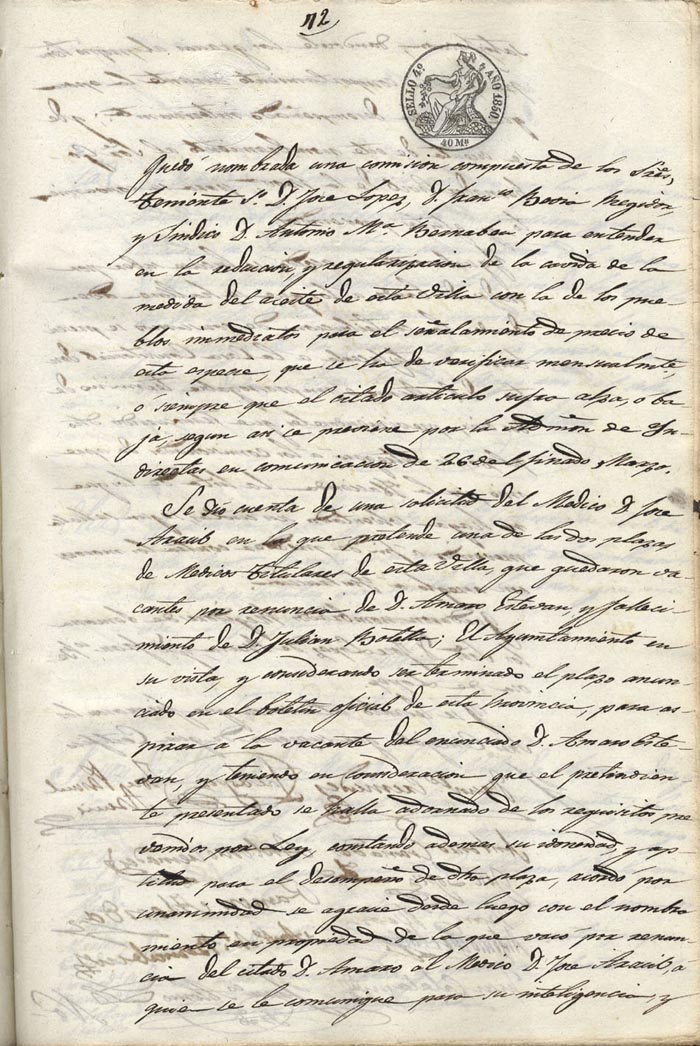 42
SELLO 4º AÑO 1850.
40 Ms
Quedó nombrada una comision compuesta de los Sres
Teniente Sr. D. Jose Lopez, D. Franco Berra Regidor,
y Sindico D. Antonio Ma Bernabeu para entender
en la reducion y regularizacion de la cavida de la
medida del aceite de esta Villa con la de los pue-
blos immediatos para el señalamiento de precio de
esta especie, que se ha de verificar mensualmte,
ó siempre que el citado articulo sufra alza, o ba-
ja, segun asi se previene por la Admon de In-
directas en comunicacion de 26 del finado Marzo.
Se dió cuenta de una solicitud del Medico D. Jose
Aracil en la que pretende una de las dos plazas
de Medicos titulares de esta Villa, que quedaron va-
cantes por renuncia de D. Amaro Estevan, y falleci-
miento de D. Julian Botella; El Ayuntamiento en
su vista, y considerando ser terminado el plazo anun-
ciado en el boletin oficial de esta Provincia, para as-
pirar á la vacante del enunciado D. Amaro Este-
van, y teniendo en consideracion que el pretendien-
te presentado se halla adornado de los requisitos pre-
venidos por Ley, constando ademas su idoneidad y ap-
titud para el desempeño de dha plaza, acordó por
unanimidad se agracie desde luego con el nombra-
miento en propiedad de la que vacó por renun-
cia del citado D. Amaro al Medico D. Jose Aracil, á
quien se le comunique para su inteligencia, y